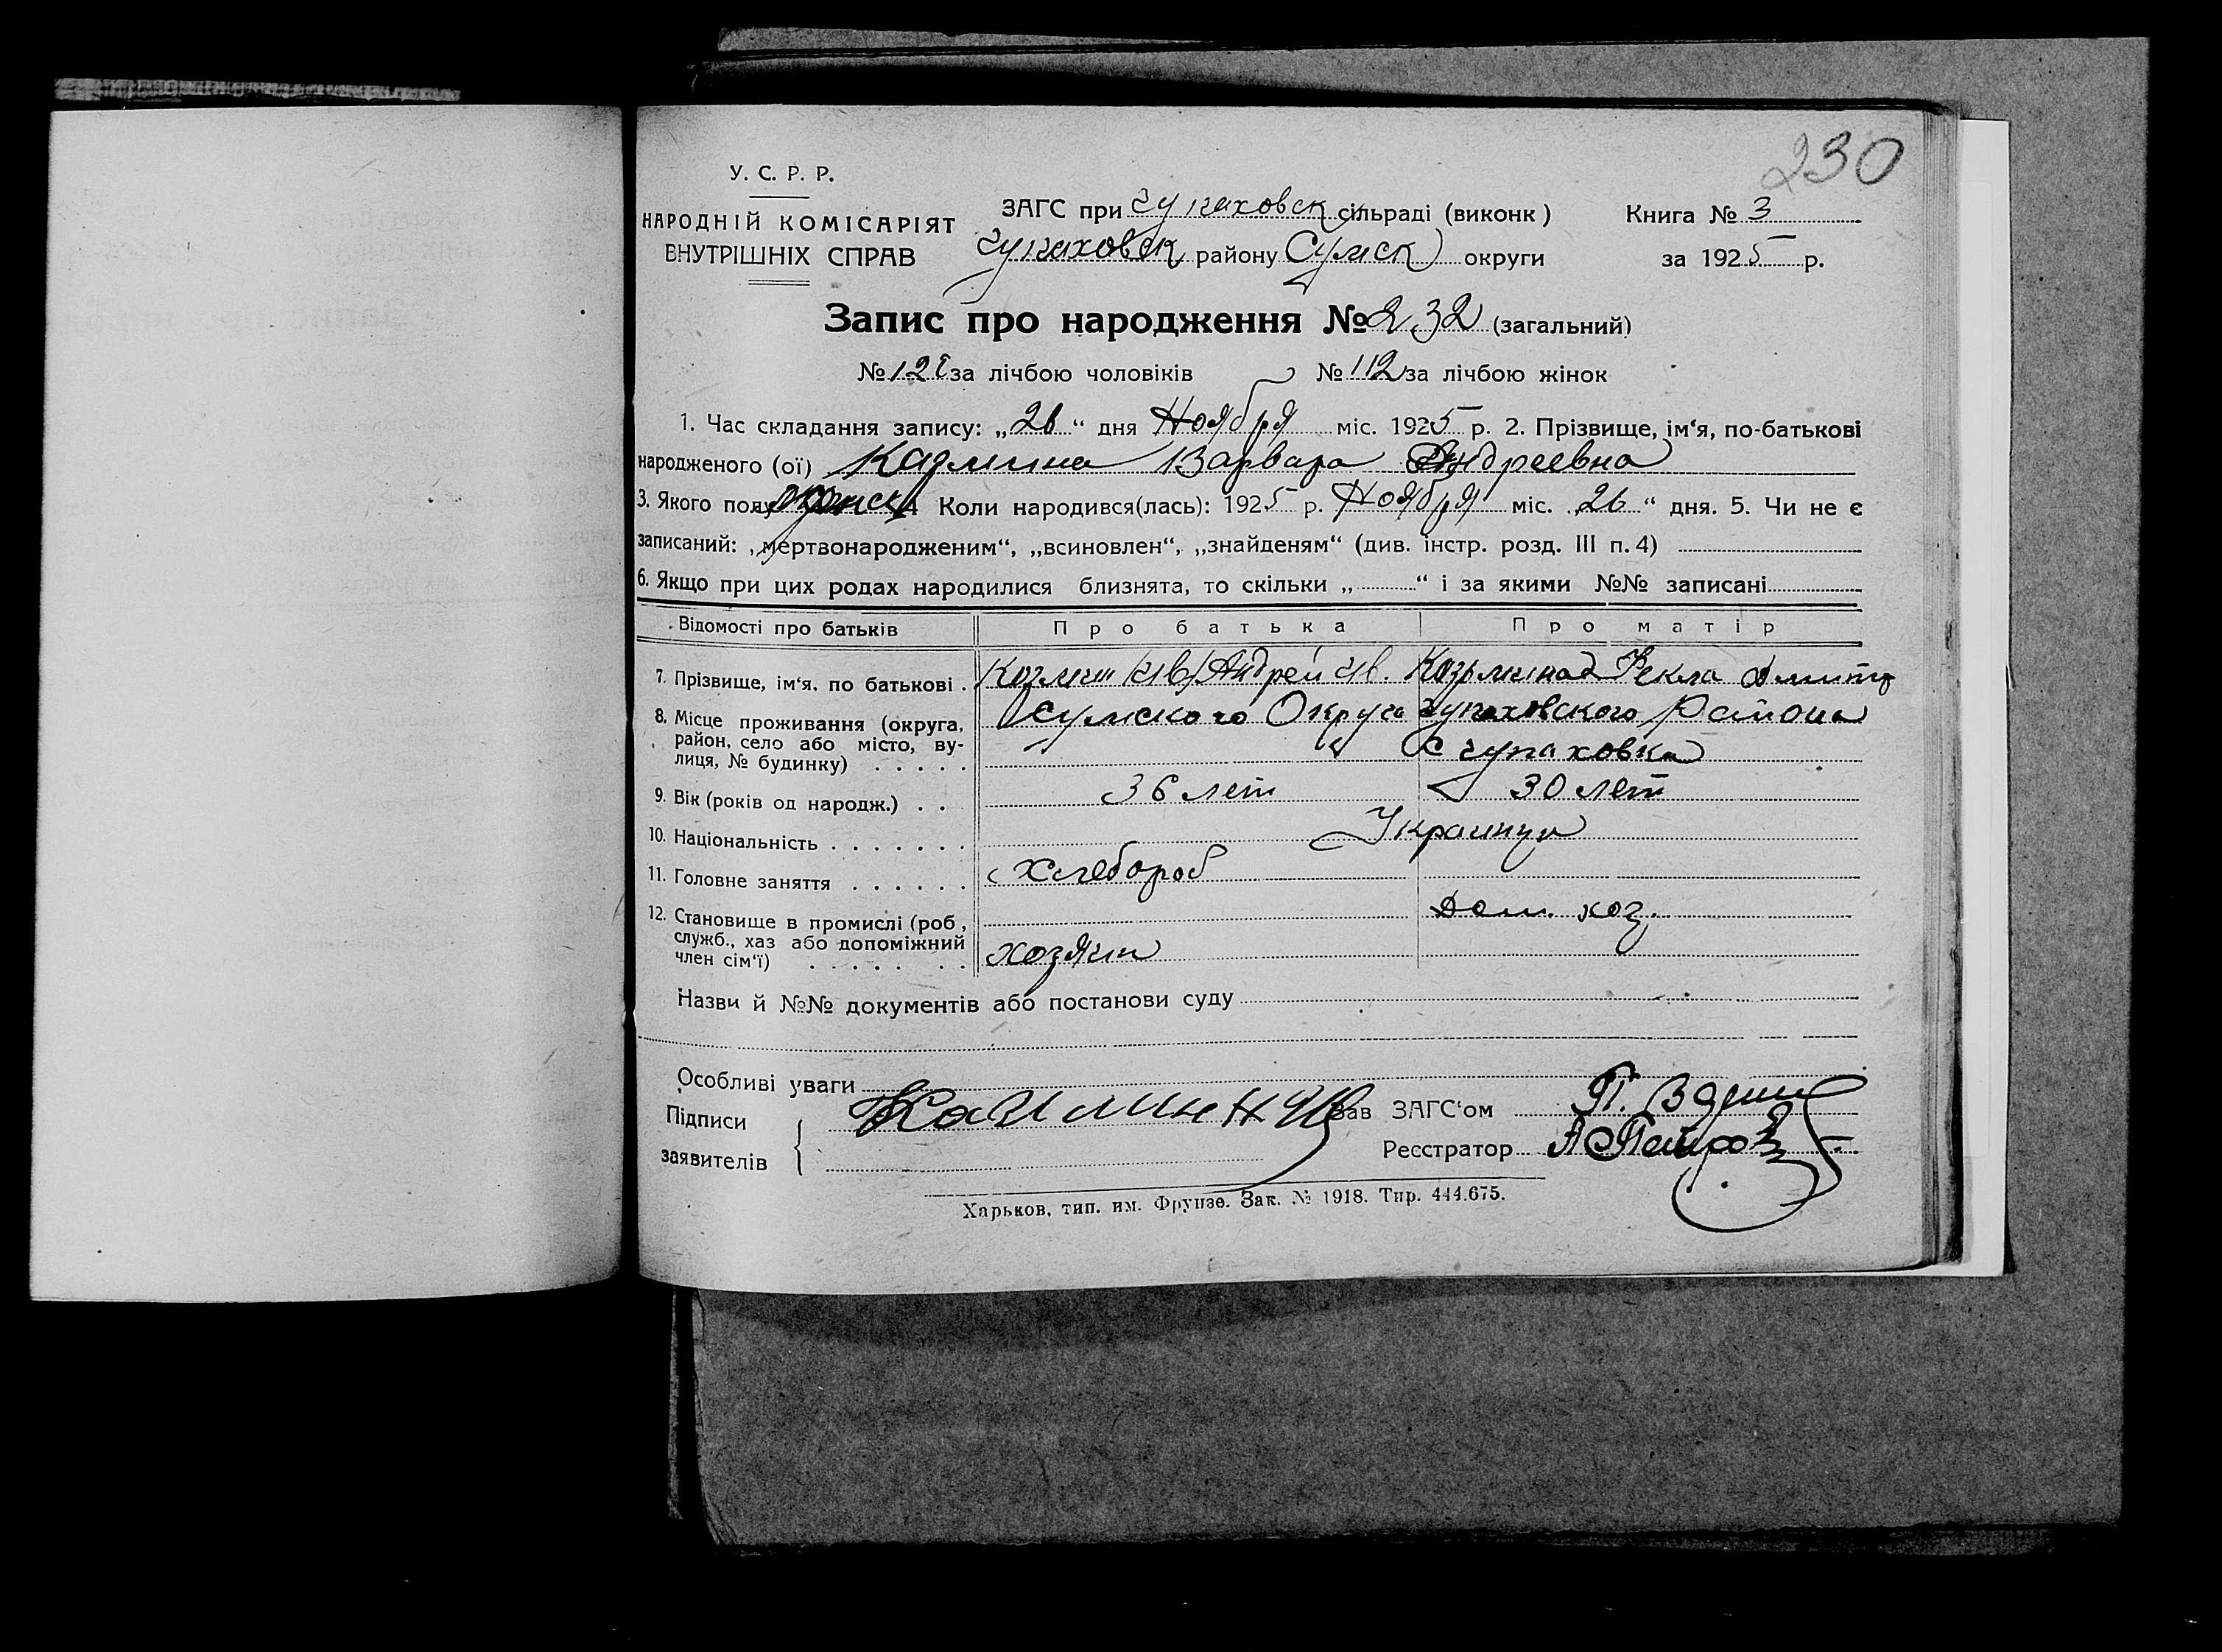 230
У. С. Р. Р.
НАРОДНІЙ КОМІСАРІЯТ
ВНУТРІШНІХ СПРАВ
ЗАГС при Чупаховск сільраді (виконк)
Чупаховск району Сумск округи
Книга № 3
за 1925 р.
Запис про народження № 232 (загальний)
№ 12 за лічбою чоловіків № 112 за лічбою жінок
1. Час складання запису: „26“ дня Ноября міс. 1925 р. 2. Прізвище, ім‘я, по-батькові
народженого (ої) Казмина Варвара Андреевна
3. Якого полу женск 4 Коли народився(лась): 1925 р. Ноября міс. 26 “ дня. 5. Чи не є
записаний: „мертвонародженим“, „всиновлен“, „знайденям“ (див. інстр. розд. III п. 4)
6. Якщо при цих родах народилися близнята, то скільки „ “ і за якими №№ записані
Відомості про батьків Про батька Про матір
7. Прізвище, ім‘я, по батькові . Козмин (Ив) Андрей Ив. Козьмина Фекла Дмитр
8. Місце проживання (округа, район, село або місто, вулиця, № будинку) . . . . . Сумского Округа Чупаховского Района
с Чупаховка
9. Вік (років од народж.) . . 36 лет 30 лет
10. Національність . . . . . . . Украинцы
11. Головне заняття . . . . . . Хлебороб
12. Становище в промислі (роб, служб., хаз або допоміжний член сім‘ї) . . . . . . . хозяин Дом. хоз.
Назви й №№ документів або постанови суду
Особливі уваги
Підписи
заявителів
Зав ЗАГС‘ом
Реєстратор А Петров
Харьков, тип. им. Фрунзе. Зак. № 1918. Тир. 444.675.